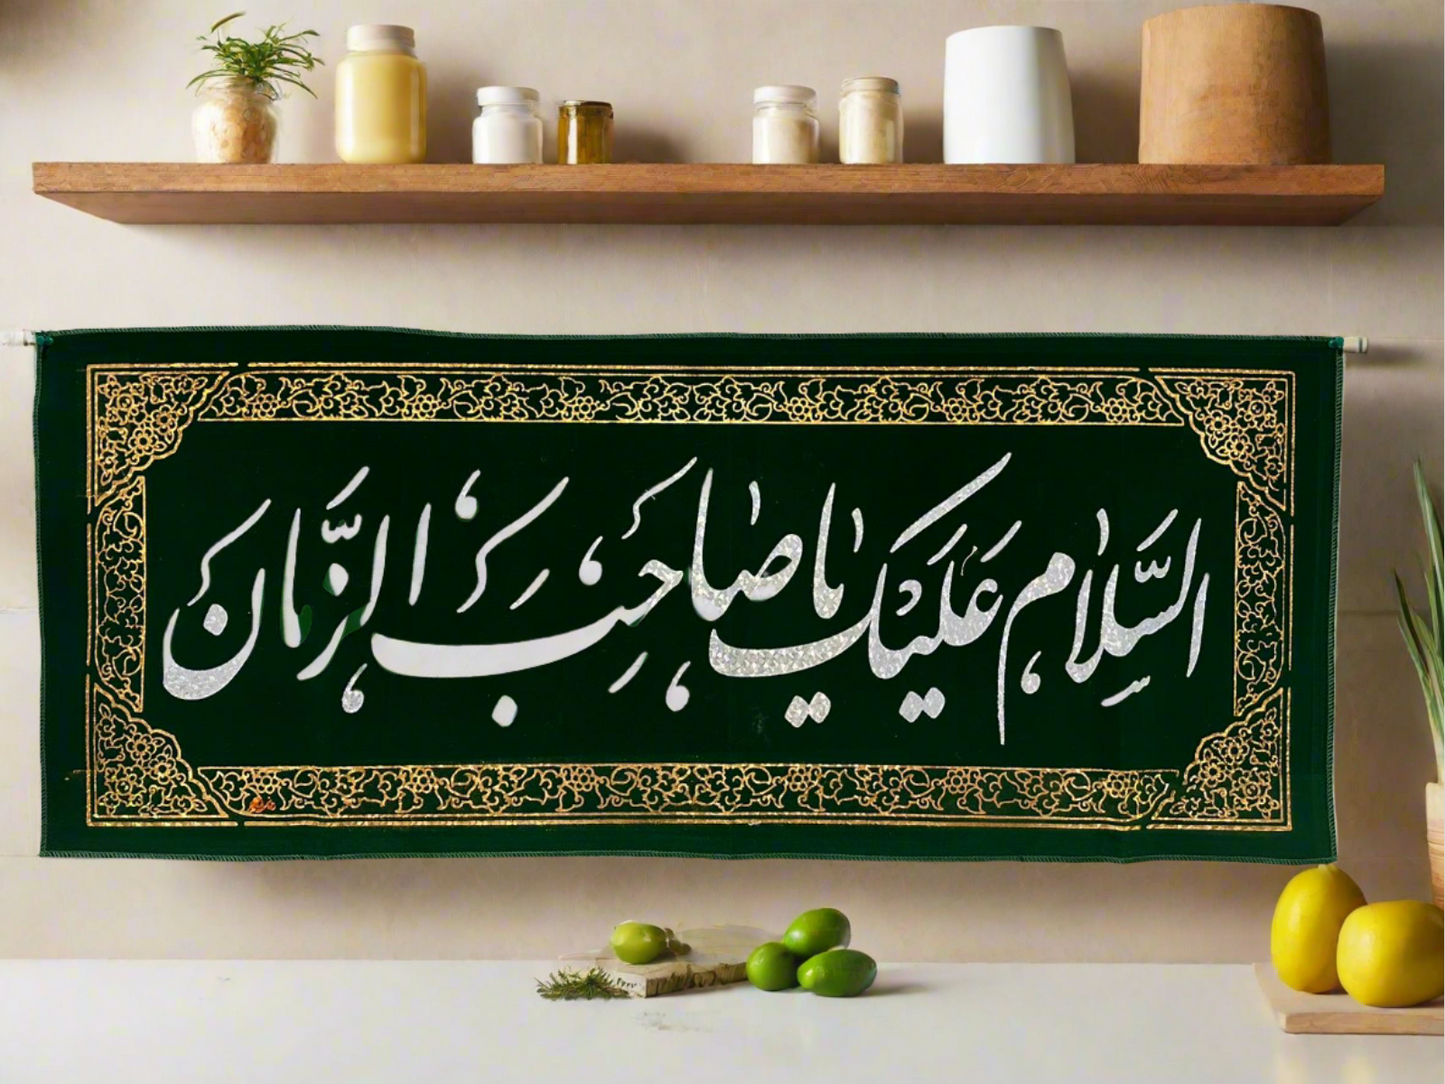 السَّلامُ عَلَيْكَ يا صاحِبَ الزَّمانِ